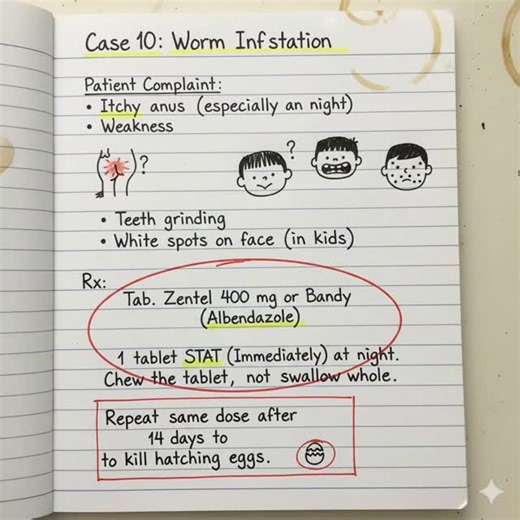 Case 10: Worm Infstation
Patient Complaint:
• Itchy anus (especially an night)
• Weakness
?
?
• Teeth grinding
• White spots on face (in kids)
Rx:
Tab. Zentel 400 mg or Bandy
(Albendazole)
1 tablet STAT (Immediately) at night.
Chew the tablet, not swallow whole.
Repeat same dose after
14 days to
to kill hatching eggs.